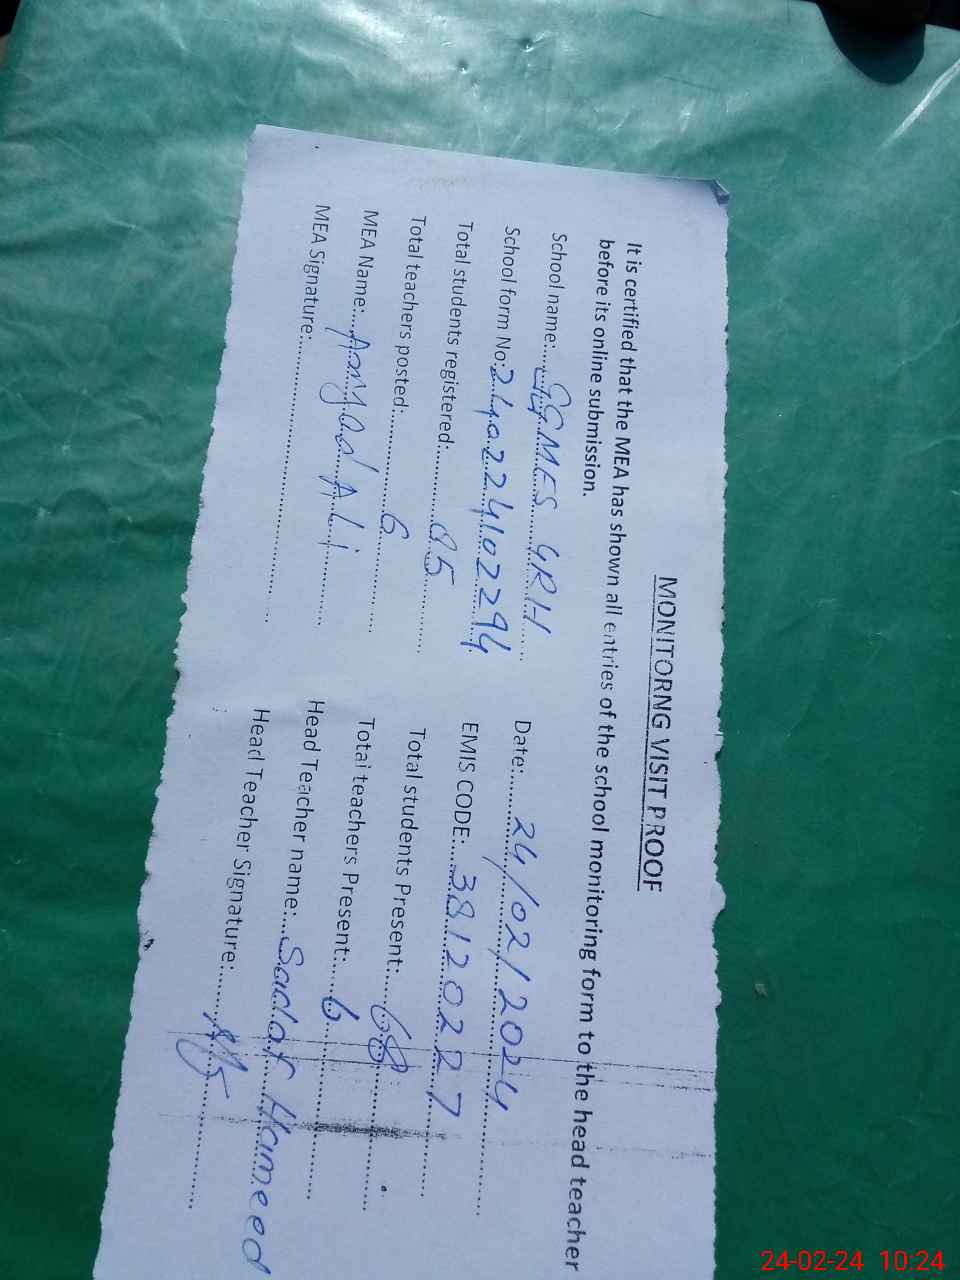 MONITORNG VISIT PROOF
It is certified that the MEA has shown all entries of the school monitoring form to the head teacher
before its online submission.
School name:.....GGMES GRH...... Date:.....24/02/2024.....
School form No:240224102294 EMIS CODE:....38120227.....
Total students registered:.....85..... Total students Present:....68.....
Total teachers posted:.....6..... Total teachers Present:....6.....
MEA Name:....Amjad Ali..... Head Teacher name:...Sadaf Hameed
MEA Signature:..... Head Teacher Signature:.....
24-02-24 10:24